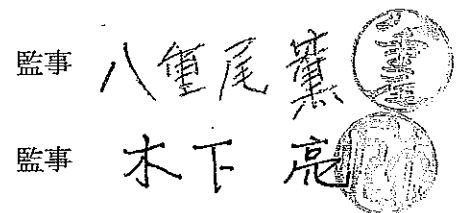 監事 八重尾 薫
監事 木下 亮